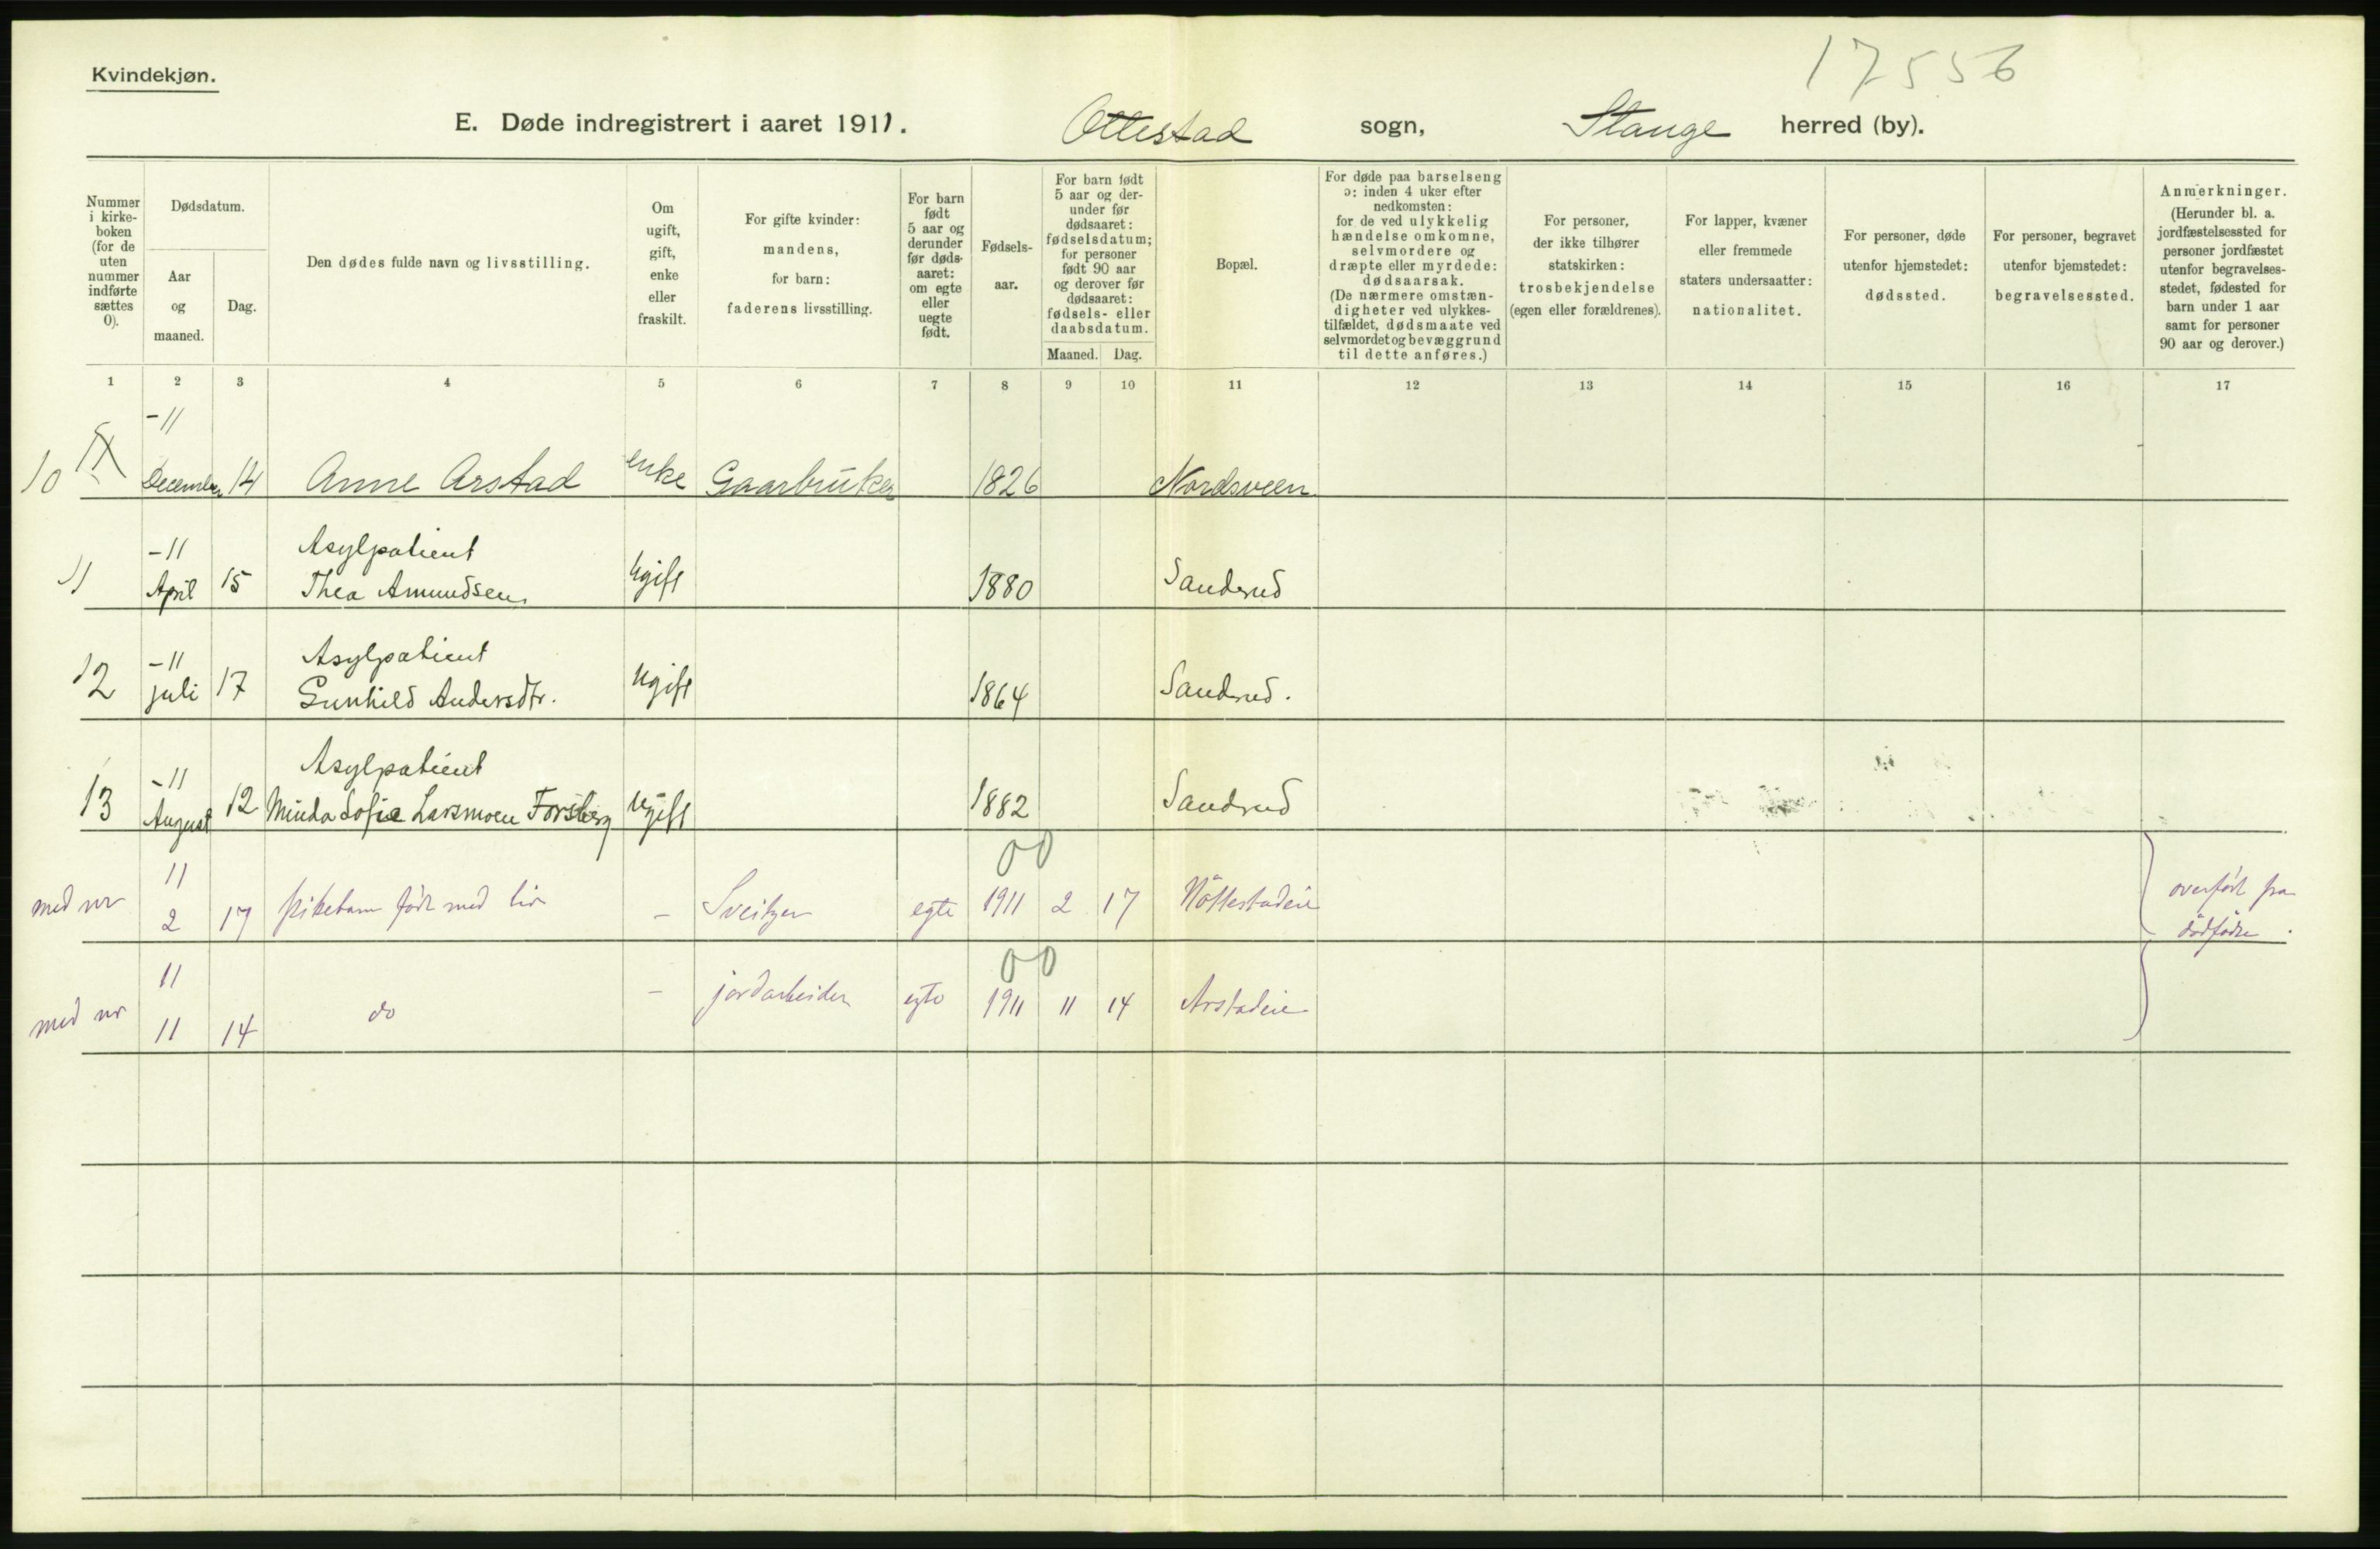 17556
Kvindekjøn.
E. Døde indregistrert i aaret 1911. Ottestad sogn, Stange herred (by).
Nummer i kirke- boken (for de uten nummer indførte sættes 0).
Dødsdatum.
Aar og maaned.
Dag.
Den dødes fulde navn og livsstilling.
Om ugift, gift, enke eller fraskilt.
For gifte kvinder: mandens, for barn: faderens livsstilling.
For barn født 5 aar og derunder før døds- aaret: om egte eller uegte født.
Fødsels- aar.
For barn født 5 aar og der- under før dødsaaret: fødselsdatum; for personer født 90 aar og derover før dødsaaret: fødsels- eller daabsdatum.
Maaned. Dag.
Bopæl.
For døde paa barselseng ɔ: inden 4 uker efter nedkomsten: for de ved ulykkelig hændelse omkomne, selvmordere og dræpte eller myrdede: dødsaarsak. (De nærmere omstæn- digheter ved ulykkes- tilfældet, dødsmaate ved selvmordet og bevæggrund til dette anføres.)
For personer, der ikke tilhører statskirken: trosbekjendelse (egen eller forældrenes).
For lapper, kvæner eller fremmede staters undersaatter: nationalitet.
For personer, døde utenfor hjemstedet: dødssted.
For personer, begravet utenfor hjemstedet: begravelsessted.
Anmerkninger. (Herunder bl. a. jordfæstelsessted for personer jordfæstet utenfor begravelses- stedet, fødested for barn under 1 aar samt for personer 90 aar og derover.)
1 2 3 4 5 6 7 8 9 10 11 12 13 14 15 16 17
-11
10 December 14 Anne Arstad enke Gaarbruker 1826 Nordsveen
-11 Asylpatient
11 April 15 Thea Amundsen Ugift 1880 Sanderud
-11 Asylpatient
12 juli 17 Gunhild Andersdtr. Ugift 1864 Sanderud.
-11 Asylpatient
13 August 12 Minda Sofie Larsmoen Forsberg Ugift 1882 Sanderud
00
11
med nr 2 17 pikebarn født med liv - Sveitzer egte 1911 2 17 Nøttestadeie overført fra
dødfødte.
00
11
med nr 11 14 do - jordarbeider egte 1911 11 14 Arstadeie